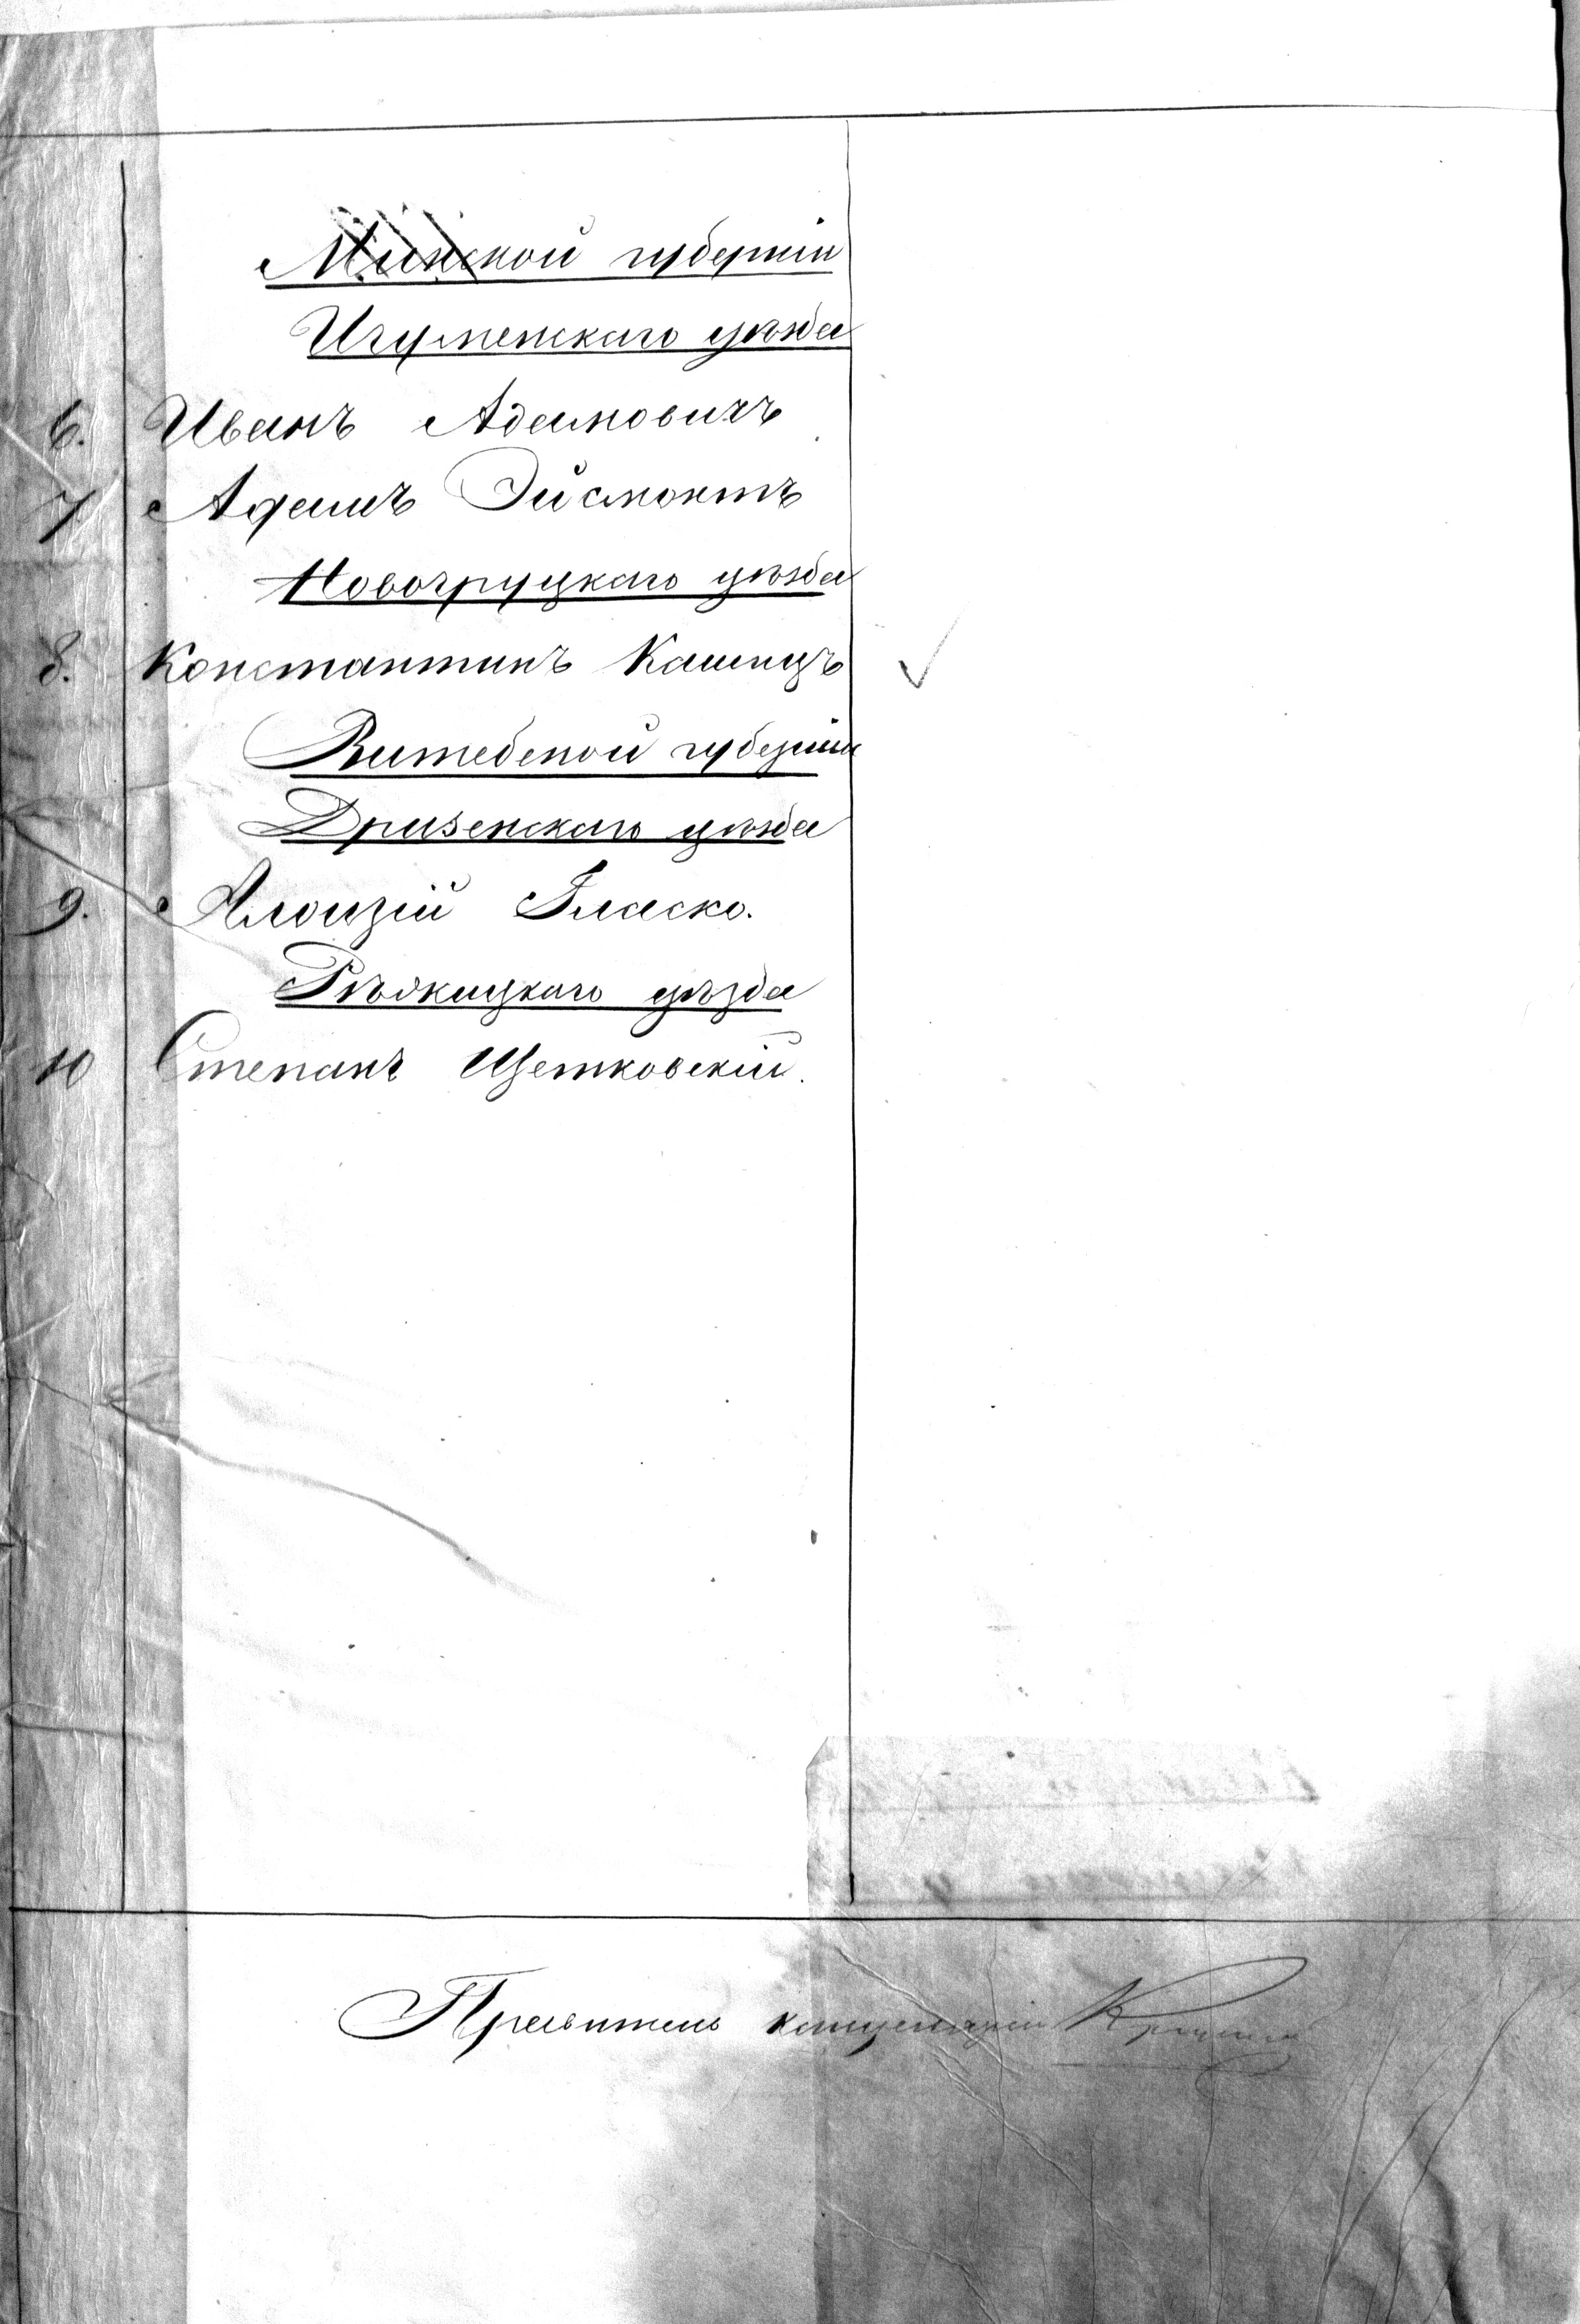 Минской губерніи
Игуменскаго уѣзда
6. Иванъ Адамовичъ
7 Адамъ Эйсмонтъ
Новогруцкаго уѣзда
8. Константинъ Кашицъ
Витебской губерніи
Дризенскаго уѣзда
9. Алоизій Гласко.
Рѣжицкаго уѣзда
10 Степанъ Щетковскій.
Правитель канцеляріи